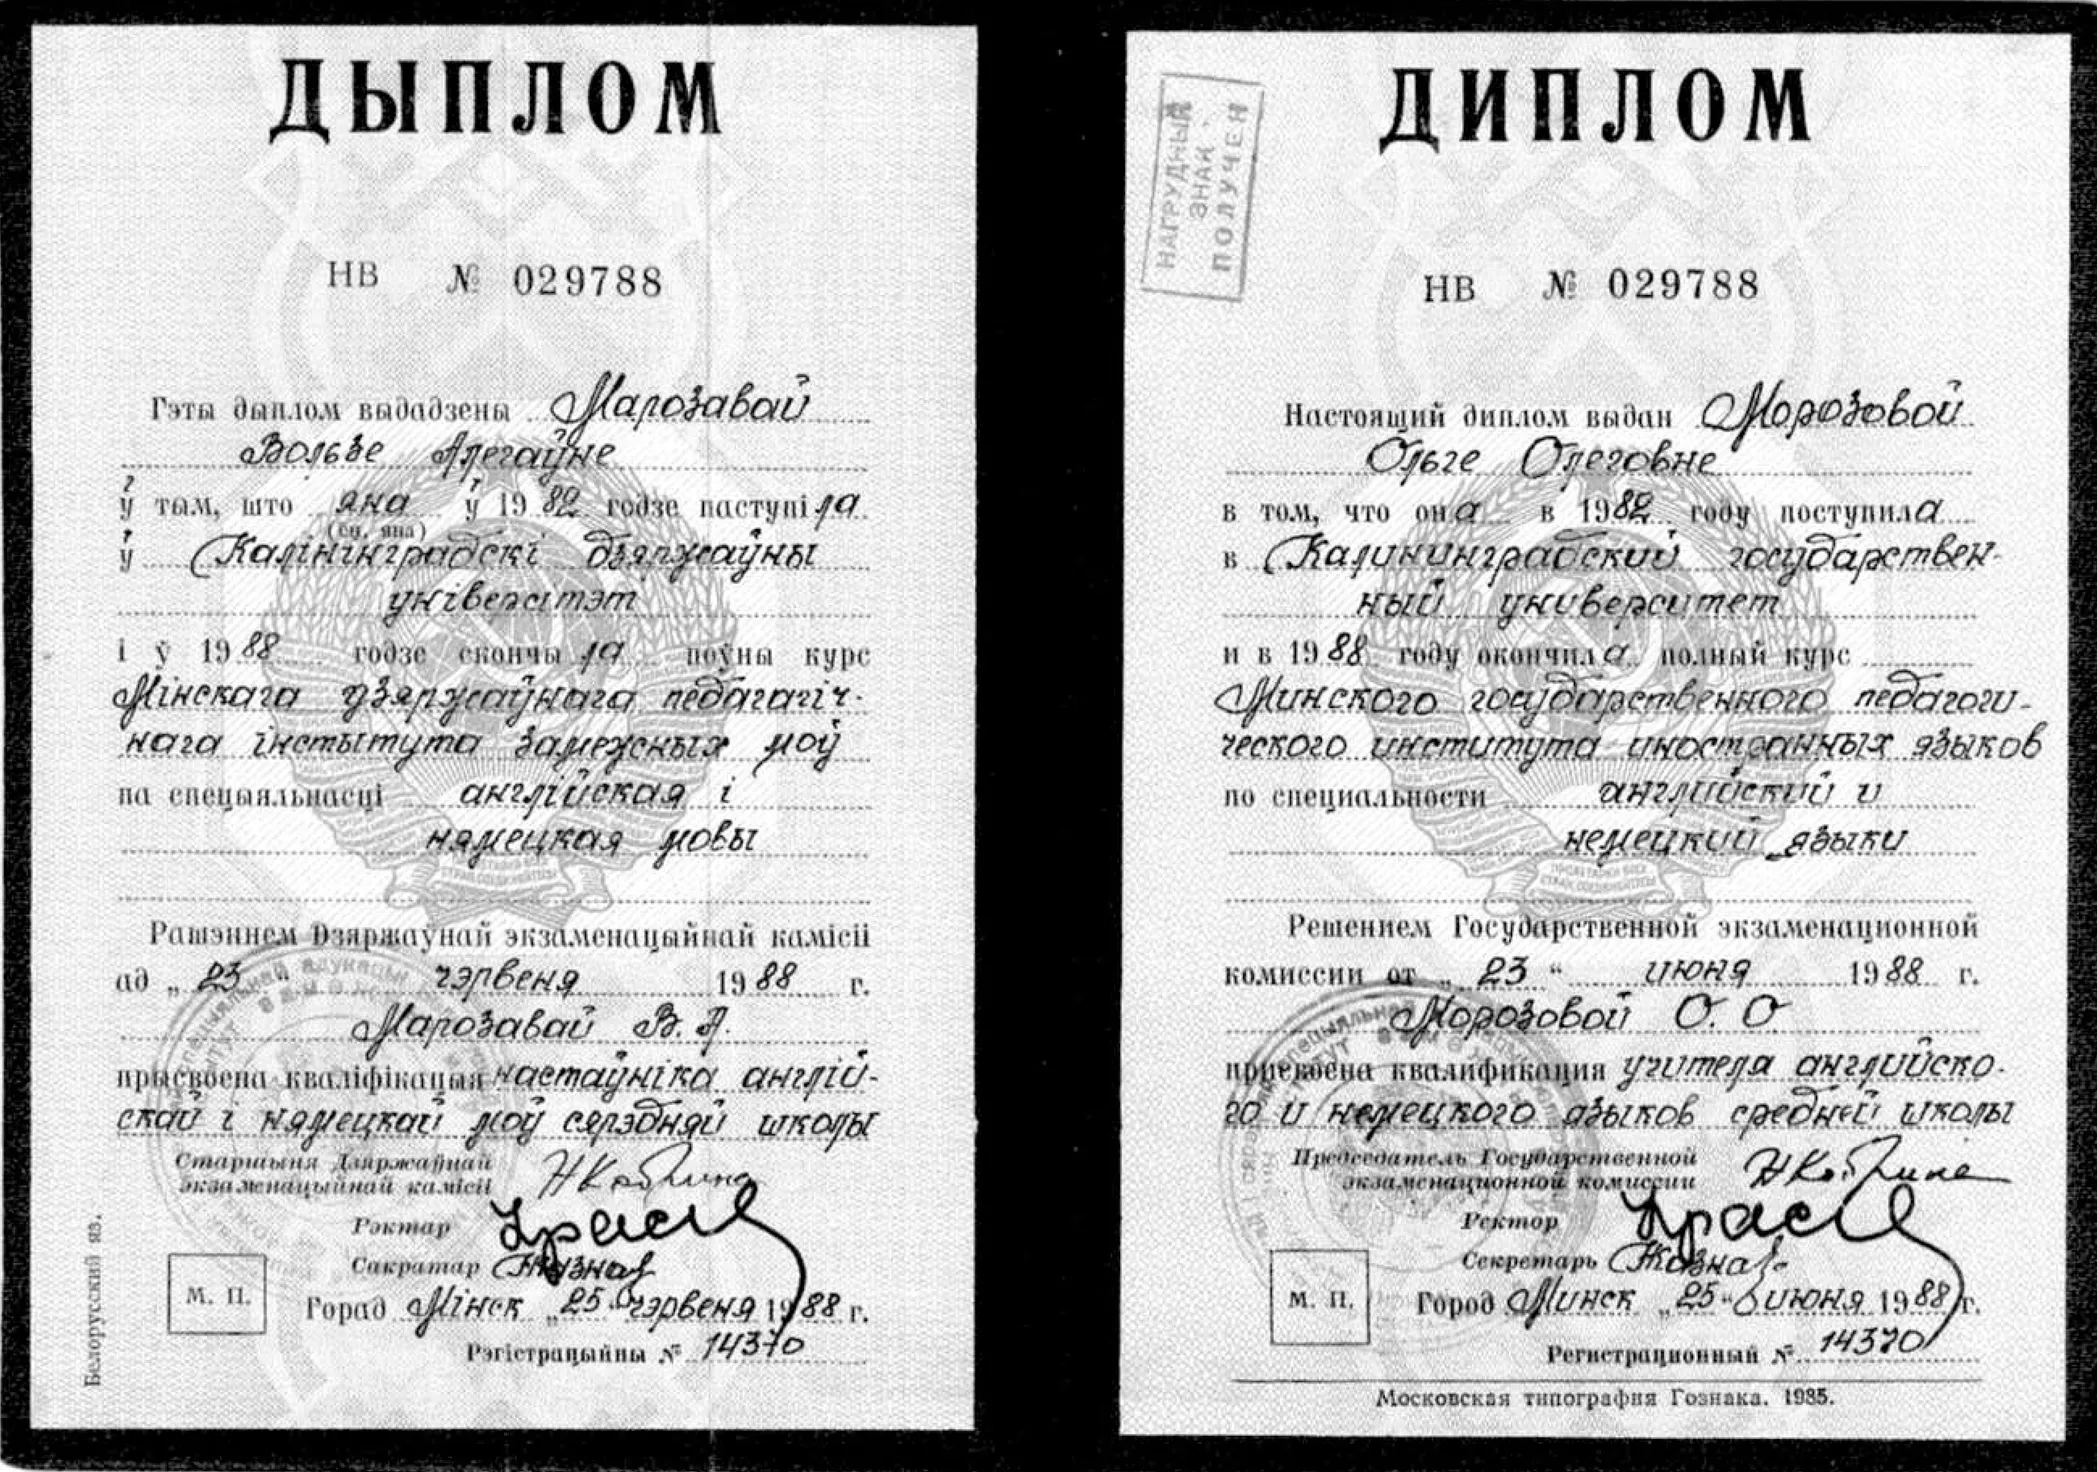 ДЫПЛОМ
НВ № 029788
Гэты дыплом выдадзены Марозавай
Вользе Алегаўне
ў том, што яна ў 1982 годзе паступіла
(ён, яна)
ў Калінінградскі дзяржаўны
універсітэт
і ў 1988 годзе скончыла поўны курс
Мінскага дзяржаўнага педагагіч-
нага інстытута замежных моў
па спецыяльнасці англійская і
нямецкая мовы
Рашэннем Дзяржаўнай экзаменацыйнай камісіі
ад „ 23 чэрвеня 1988 г.
Марозавай В. А.
прысвоена кваліфікацыя настаўніка англій-
скай і нямецкай моў сярэдняй школы
Старшыня Дзяржаўнай
экзаменацыйнай камісіі
Рэктар
Сакратар
М. П.
Горад Мінск „25" чэрвеня 1988 г.
Рэгістрацыйны № 14370
Белорусский яз.
ДИПЛОМ
НАГРУДНЫЙ
ЗНАК
ПОЛУЧЕН
НВ № 029788
Настоящий диплом выдан Морозовой
Ольге Олеговне
в том, что она в 1982 году поступила
в Калининградский государствен-
ный университет
и в 1988 году окончила полный курс
Минского государственного педагоги-
ческого института иностранных языков
по специальности английский и
немецкий языки
Решением Государственной экзаменационной
комиссии от „ 23 " июня 1988 г.
Морозовой О. О
присвоена квалификация учителя английско-
го и немецкого языков средней школы
Председатель Государственной
экзаменационной комиссии
Ректор
Секретарь
М. П.
Город Минск „25" июня 1988 г.
Регистрационный № 14370
Московская типография Гознака. 1985.